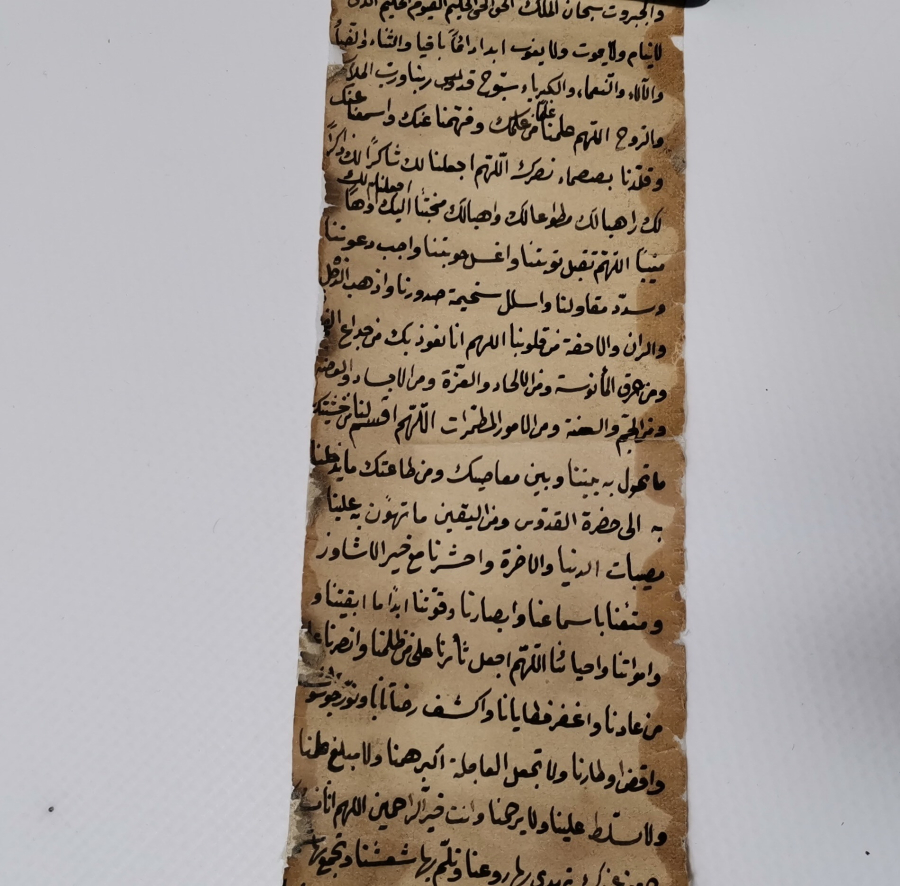 والجبروت سبحان الملك الحق الحي الحليم القيوم حليم الذي
لاينام ولايموت ولايفوت ابدا دائما باقيا والثناء والبقاء
والآلاء والنعماء والكبرياء سبوح قدوس ربنا ورب الملائكة
والروح اللهم علمنا علما من علمك وفهمنا عنك واسمعنا عنك
وقلدنا بصمصام نصرك اللهم اجعلنا لك شاكرا لك ذاكرا
لك راهبا لك مطواعا لك واهبا لك مخبتا اليك اواها اجعلنا لك
منيبا اللهم تقبل توبتنا واغسل حوبتنا واجب دعوتنا
وسدد مقاولنا واسلل سخيمة صدورنا واذهب الذحل
والران والاحنة من قلوبنا اللهم انا نعوذ بك من جداع
ومن المأنوسة ومن الالحاد والعزة ومن
ومن والعنة ومن الامور المطمرات اللهم اقسم لنا من خشيتك
ماتحول به بيننا وبين معاصيك ومن طاعتك ما يدخلنا
به الى حضرة القدوس ومن اليقين ما تهون به علينا
مصيبات الدنيا والاخرة واحشرنا مع خير
ومتعنا باسماعنا وابصارنا وقوتنا ابدا ما ابقيتنا و
وامواتنا واحيائنا اللهم اجعل ثأرنا على من ظلمنا وانصرنا على
من عادنا واغفر خطايانا واكشف ونور
واقض اوطارنا ولا تجعل العاجلة اكبر همنا ولا مبلغ علمنا
ولا تسلط علينا ولا يرحمنا وانت خير الراحمين اللهم انا
تهدي بها روعنا وتلم بها شعثنا وتجمع بها